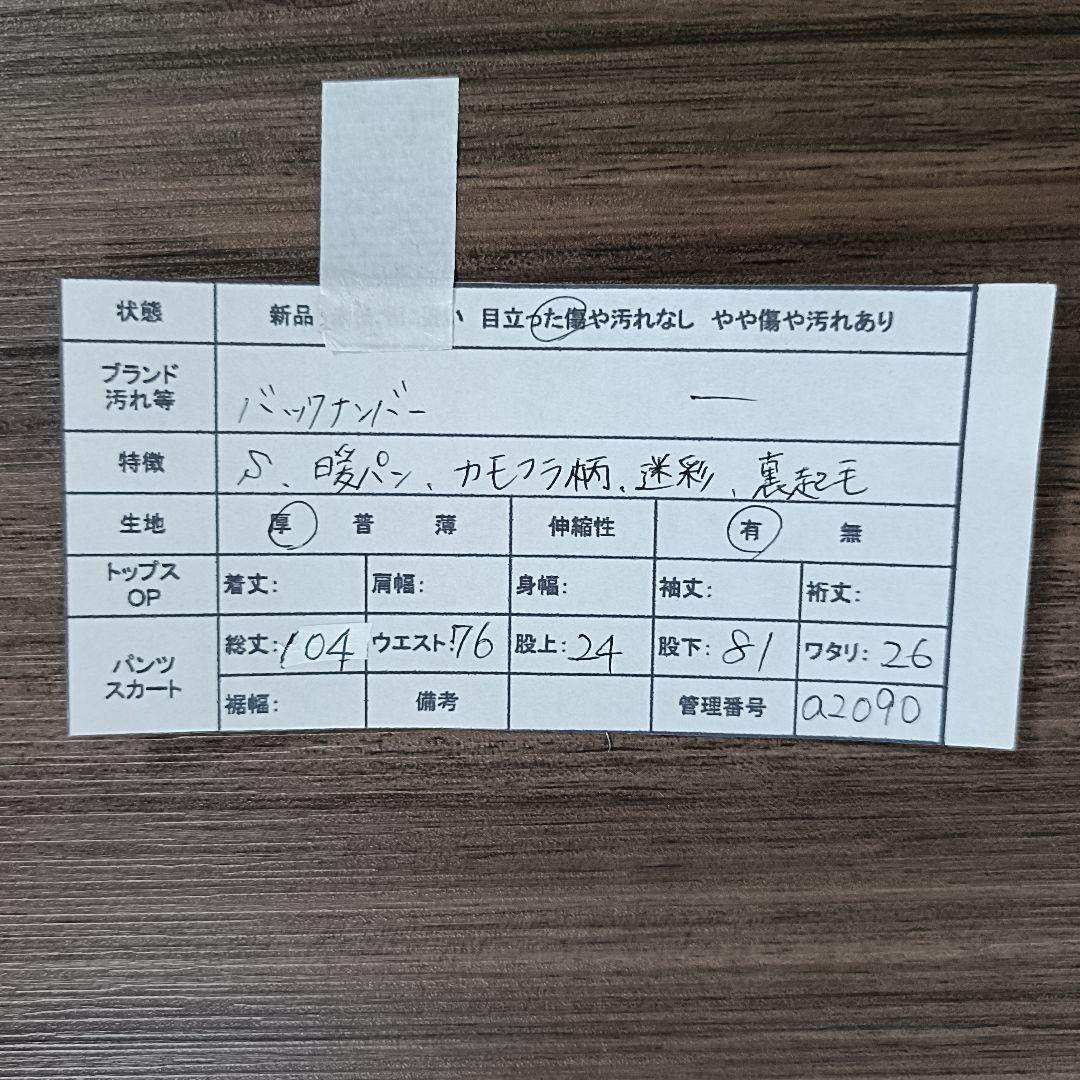 状態 新品 い 目立った傷や汚れなし やや傷や汚れあり
ブランド
汚れ等 バックナンバー ー
特徴 S、暖パン、カモフラ柄、迷彩、裏起毛
生地 厚 普 薄 伸縮性 有 無
トップス
OP 着丈: 肩幅: 身幅: 袖丈: 裄丈:
パンツ
スカート 総丈:104 ウエスト:76 股上:24 股下:81 ワタリ:26
裾幅: 備考 管理番号 a2090